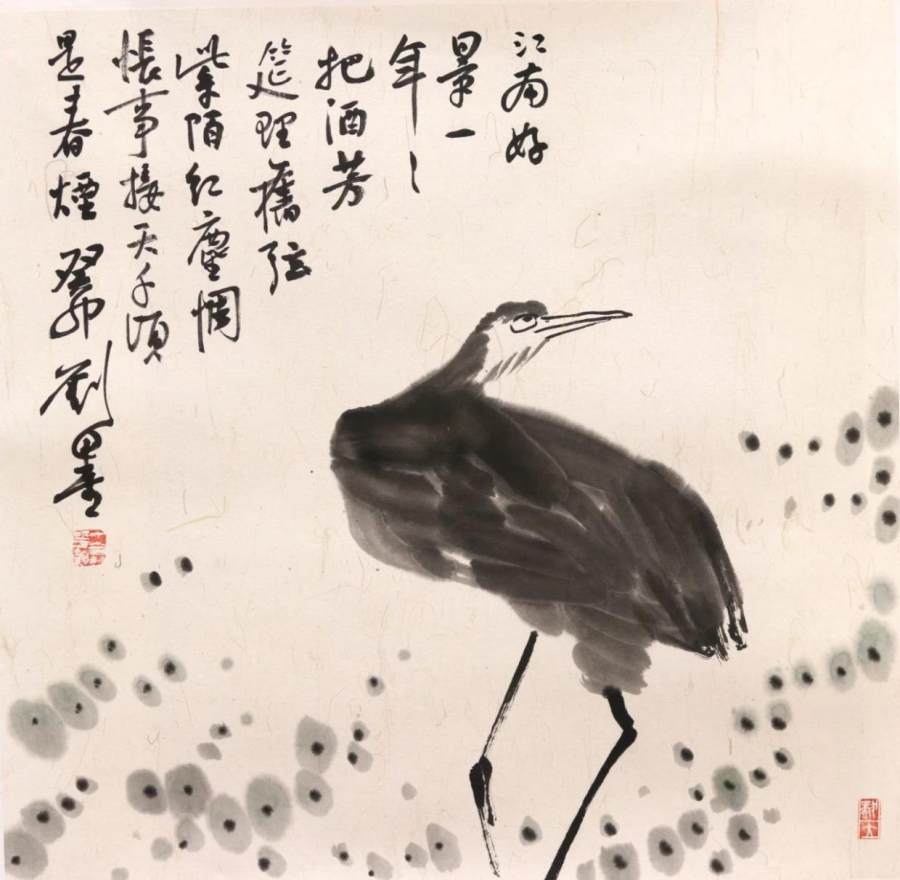 江南好
景一
年〻
把酒芳
筵理舊弦
紫陌红塵惆
悵事接天千頃
是春煙 癸卯 劉墨